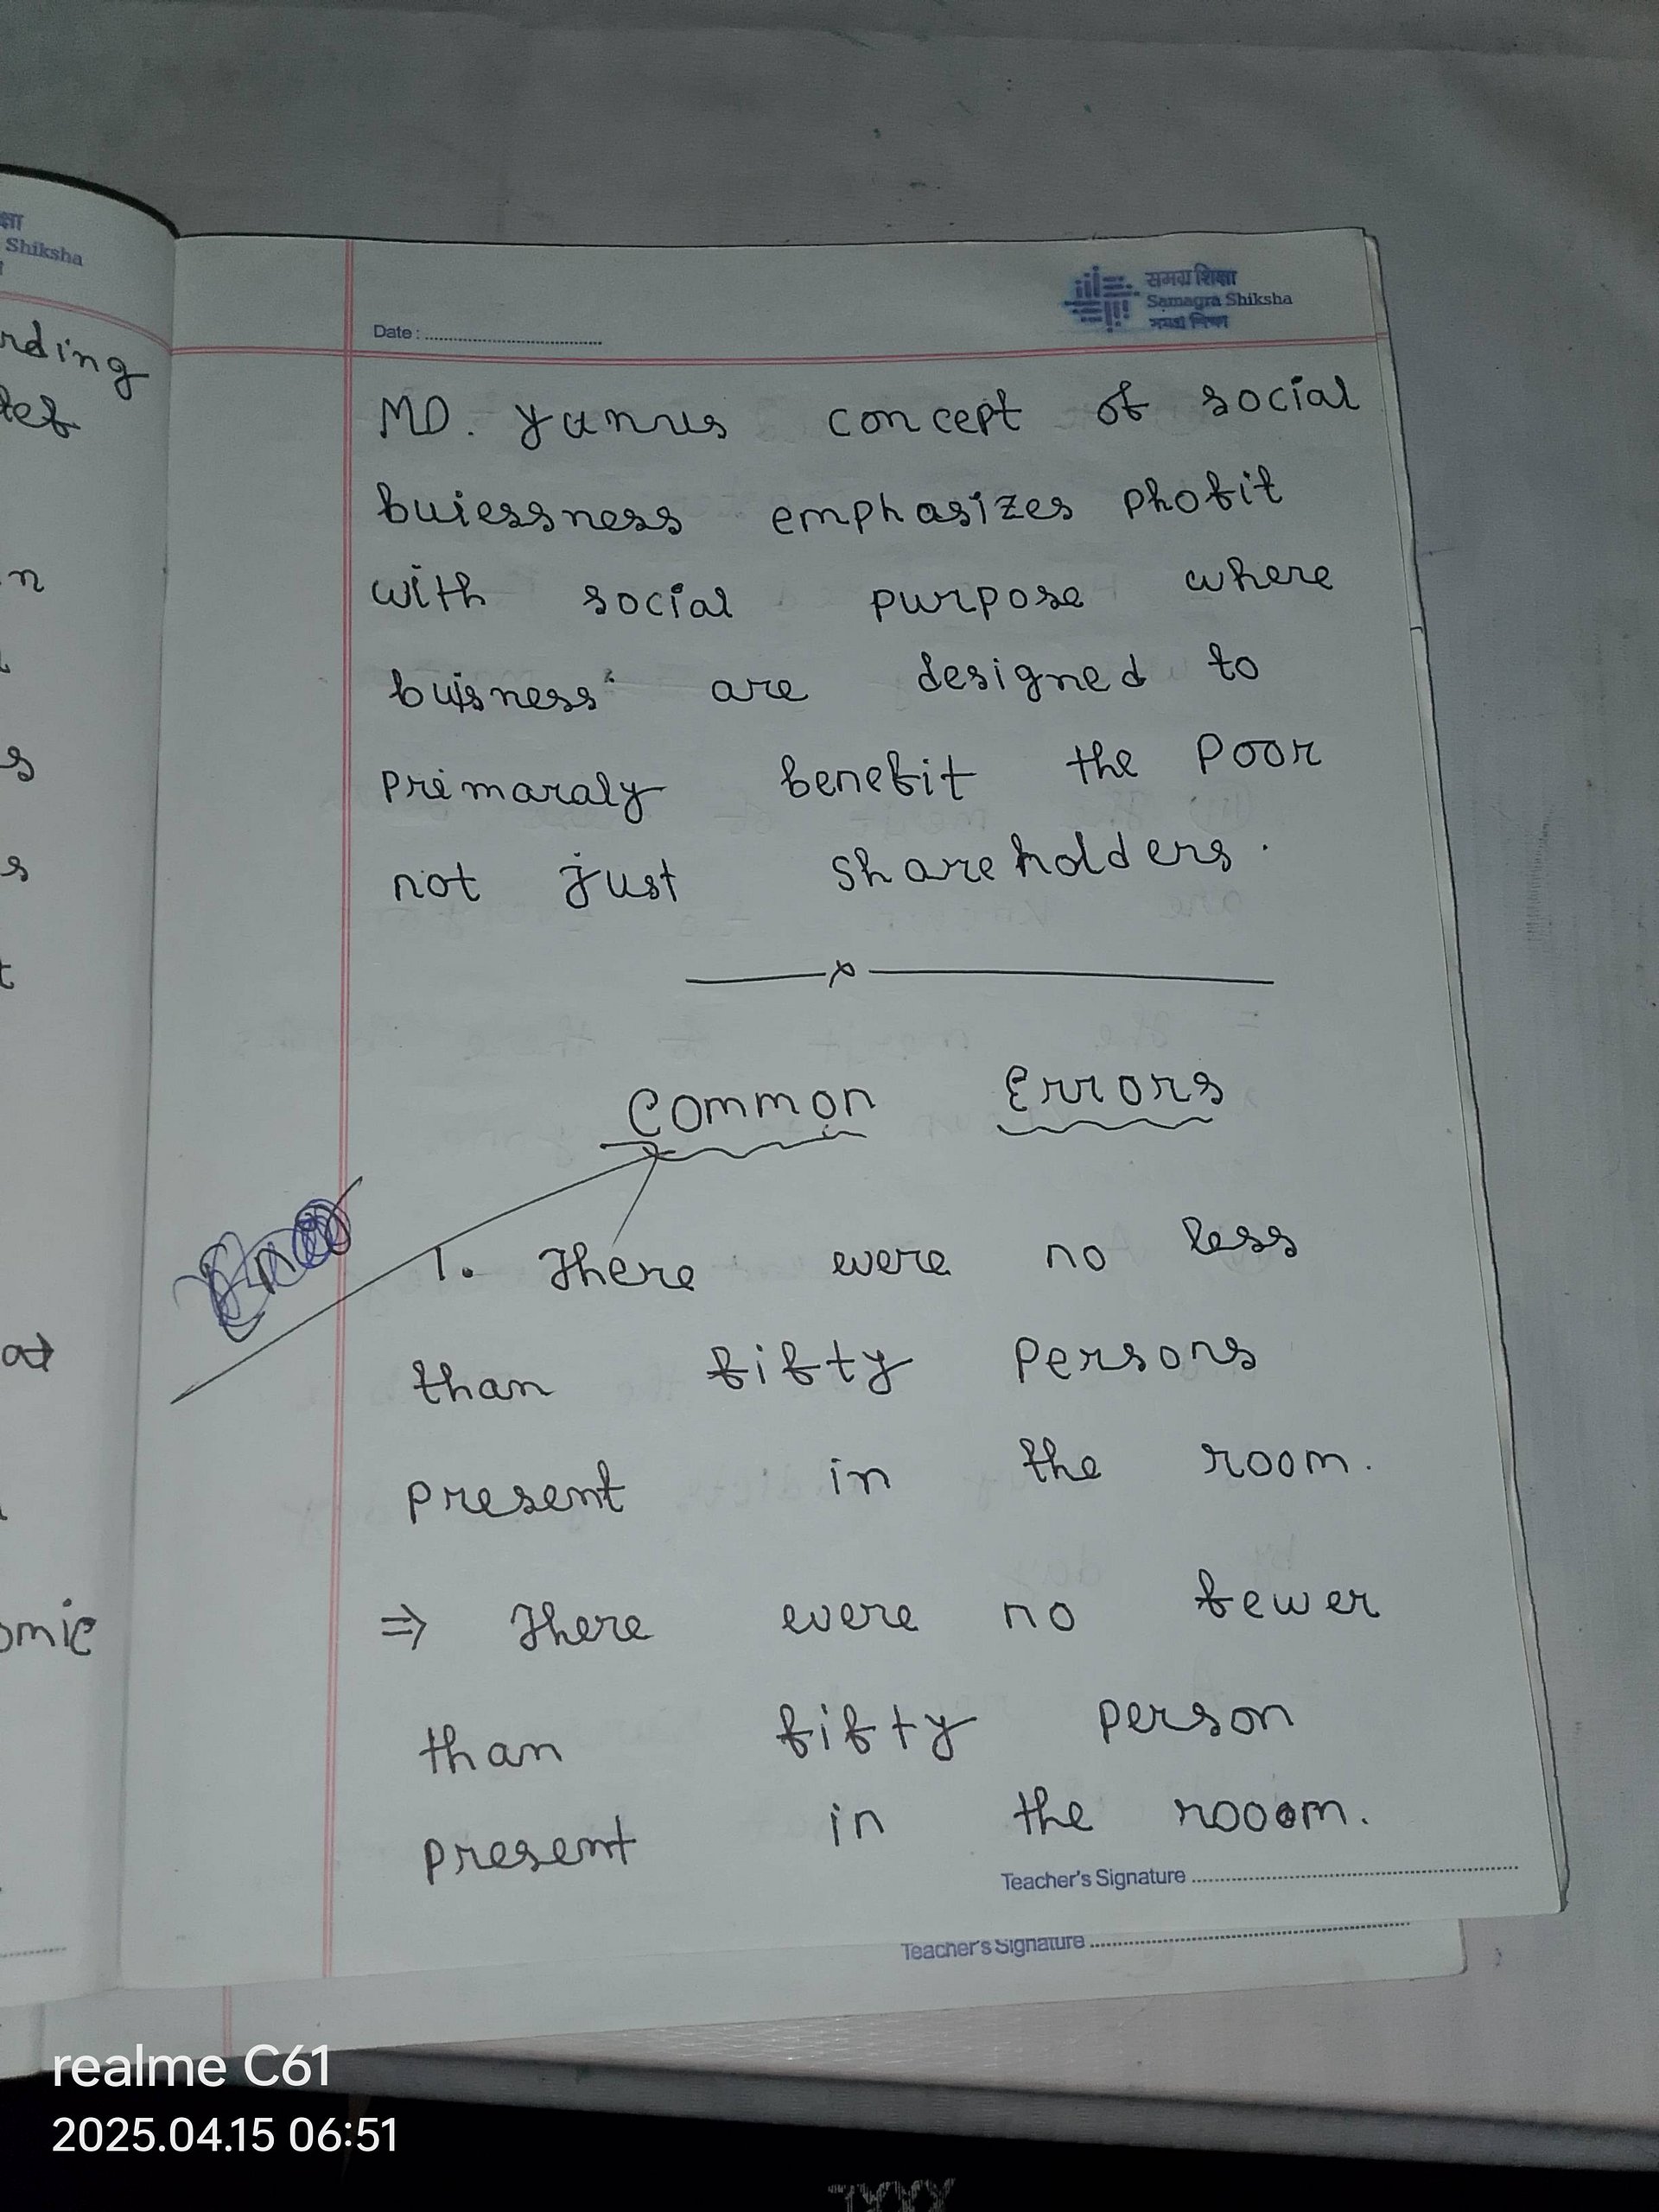 क्षा
Shiksha
rding
n
s
s
t
omic
Date :
समग्र शिक्षा
Samagra Shiksha
সমগ্র শিক্ষা
MD. yunus concept of social
buiessness emphasizes phofit
with social purpose where
buisness are designed to
primaraly benefit the poor
not just shareholders.
x
Common Errors
1. There were no less
than fifty persons
present in the room.
⇒ There were no fewer
than fifty person
present in the rooom.
Teacher's Signature
Teacher's Signature
realme C61
2025.04.15 06:51